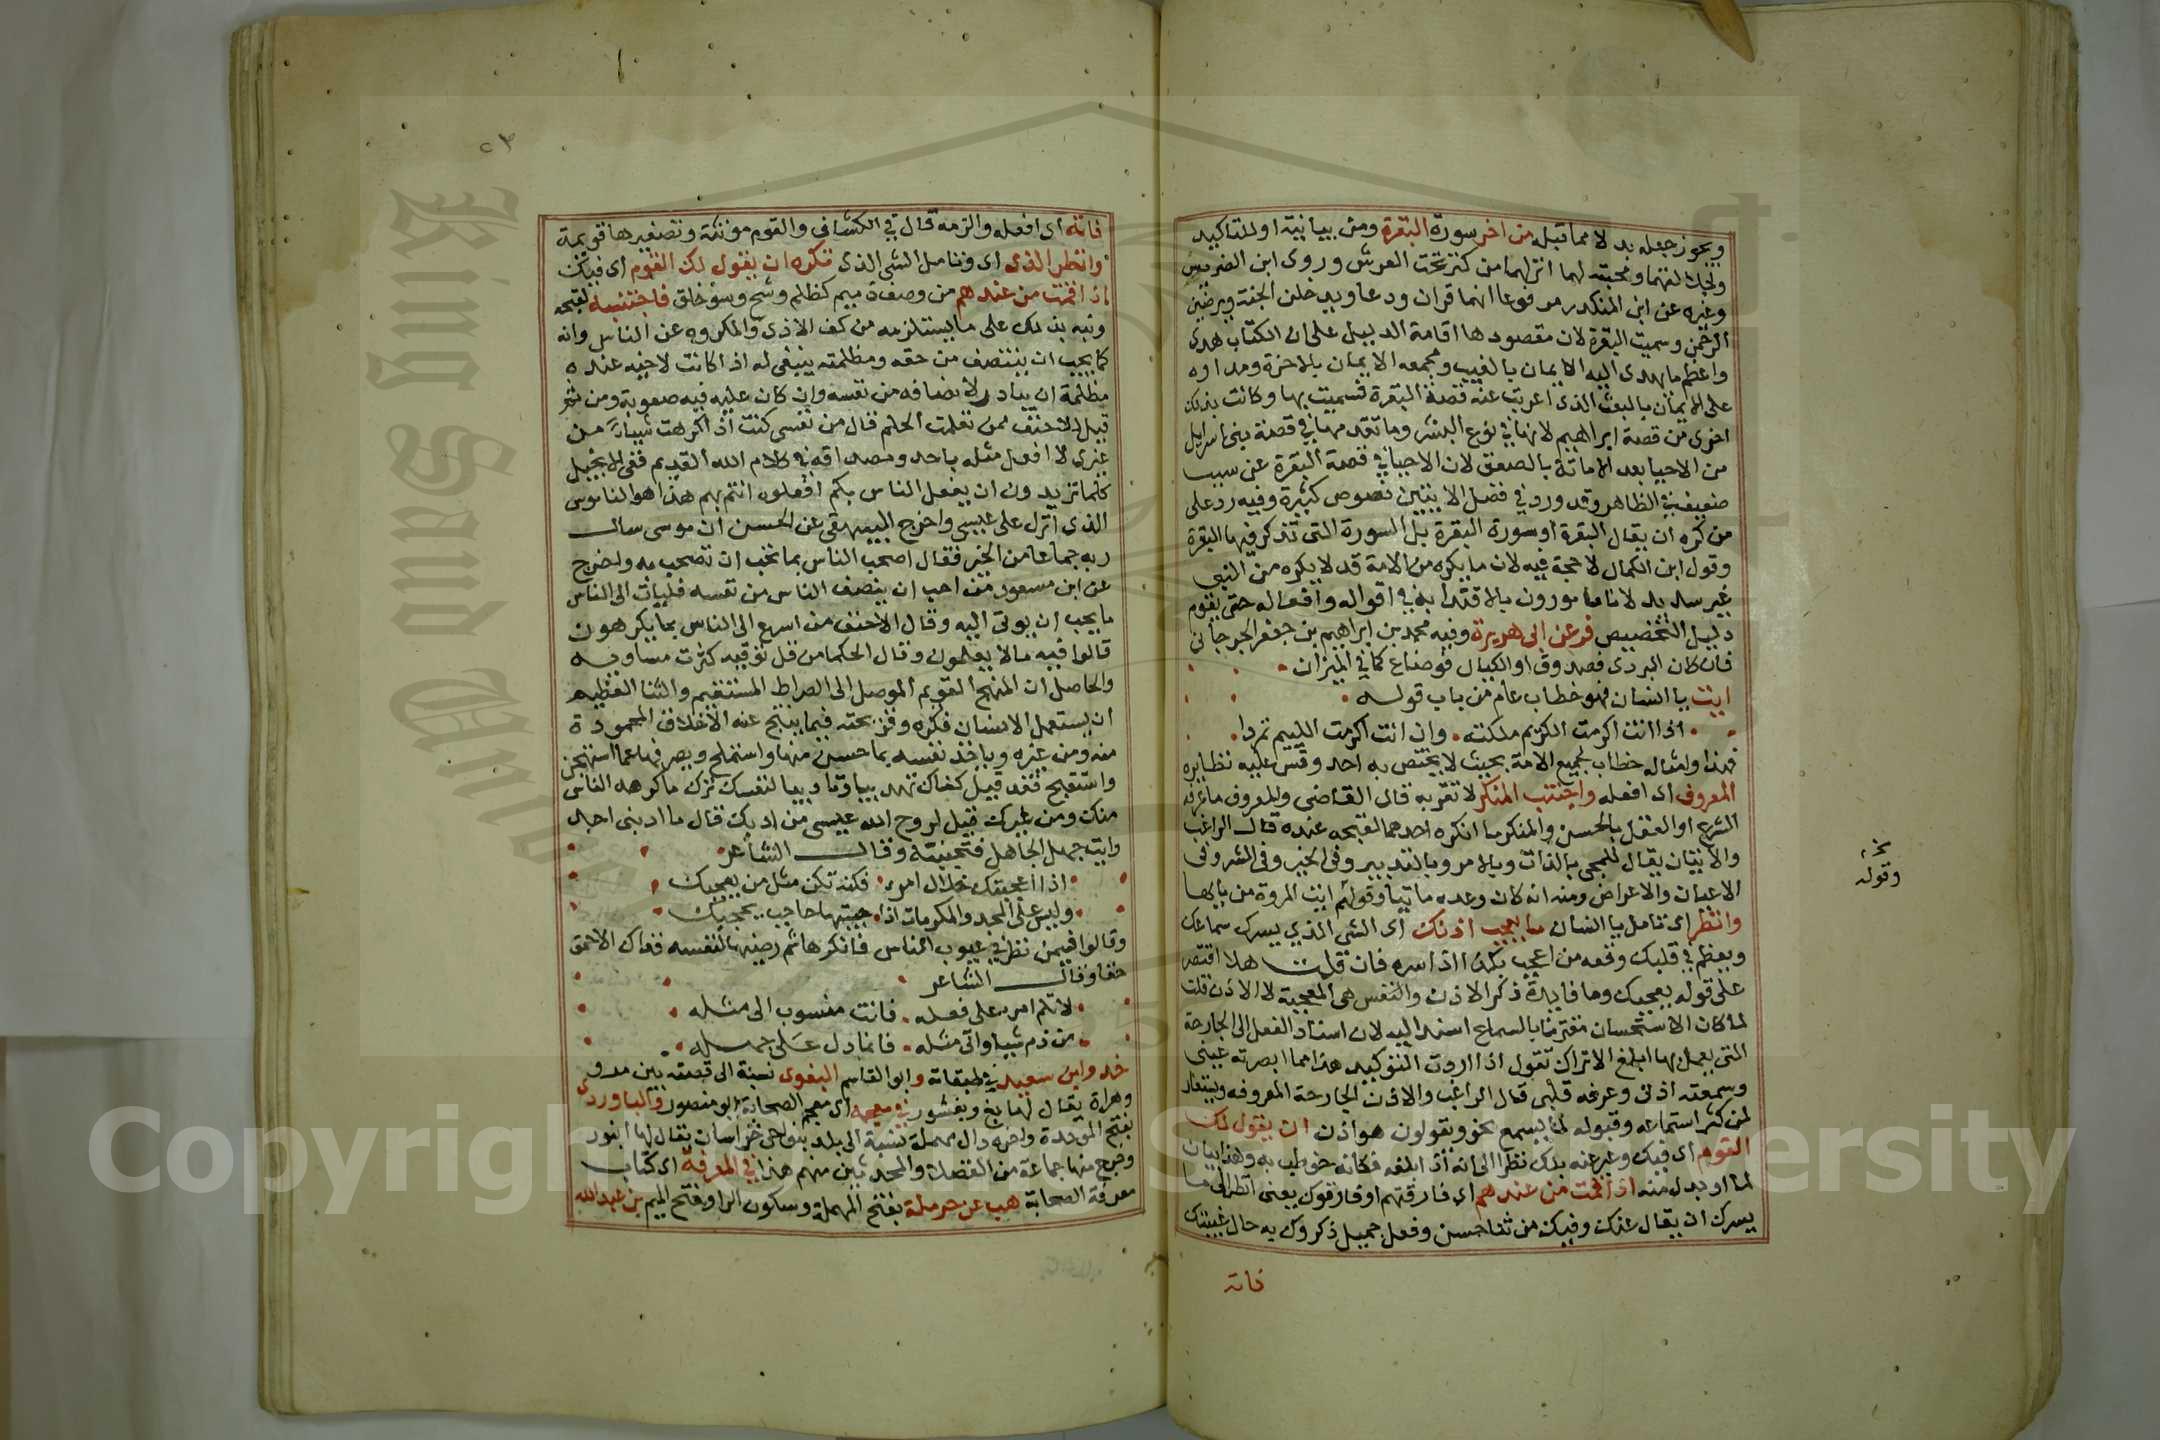 ويجوز جعله بدلا مما قبله من اخر سورة البقرة ومن بيانية او للتاكيد
ولجلالتهما ومحبته لهما انزلهما من كنز تحت العرش وروى ابن الضريس
وغيره عن ابن المنكدر مرفوعا انهما قران ودعا ويدخلن الجنة ويرضين
الرحمن وسميت البقرة لان مقصودها اقامة الدليل على ان الكتاب هدى
واعظم ما يهدى اليه الايمان بالغيب ومجمعه الايمان بالاخرة ومداره
على الايمان بالبعث الذى اعربت عنه قصة البقرة فسميت بها وكانت بذلك
احرى من قصة ابراهيم لانها في نوع البشر وما تقدمها في قصة بنى اسرايل
من الاحيا بعد الاماتة بالصعق لان الاحيا في قصة البقرة عن سبب
ضعيف في الظاهر وقد ورد في فضل الايتين نصوص كثيرة وفيه رد على
من كره ان يقال البقرة او سورة البقرة بل السورة التى تذكر فيها البقرة
وقول ابن الكمال لا حجة فيه لان ما يكره من الامة قد لا يكره من النبى
غير سديد لاننا مامورون بالاقتدا به في اقواله وافعاله حتى يقوم
دليل التخصيص فر عن ابى هريرة وفيه محمد بن ابراهيم بن جعفر الجرجانى
فان كان البردى فصدوق او الكيال فوضاع كما في الميزان
ايت يا انسان فهو خطاب عام من باب قوله
اذا انت اكرمت الكريم ملكته وان انت اكرمت اللييم تمردا
فهذا وامثاله خطاب لجميع الامة بحيث لا يختص به احد وقس عليه نظايره
المعروف اى افعله واجتنب المنكر لا تقربه قال القاضى والمعروف ما عرفه
الشرع او العقل بالحسن والمنكر ما انكره احدهما لقبحه عنده قال الراغب
والاتيان يقال للمجى بالذات وبالامر وبالتدبير وفى الخير وفى الشر وفى
الاعيان والاعراض ومنه انه كان وعده ماتيا وقولهم ايت المروة من بابها
وانظر اى تامل يا انسان ما يعجب اذنك اى الشى الذى يسرك سماعك
ويعظم في قلبك وقعه من اعجب بكذا اذا سره فان قلت هلا اقتصر
على قوله يعجبك وما فايدة ذكر الاذن والنفس هى المعجبة لا الاذن قلت
لما كان الاستحسان مقترنا بالسماع اسند اليه لان اسناد الفعل الى الجارحة
التى يعمل بها ابلغ الا تراك تقول اذا اردت التوكيد هذا مما ابصرته عينى
وسمعته اذنى وعرفه قلبى قال الراغب والاذن الجارحة المعروفه ويستعار
لمن كثر استماعه وقبوله لما يسمع نحو ويقولون هو اذن ان يقول لك
القوم اى فيك وعبر عنه بذلك نظرا الى انه اذا بلغه فكانه خوطب به وهذا بيان
لما او بدل منه اذا قمت من عندهم اى فارقتهم او فارقوك يعنى انظر الى ما
يسرك ان يقال عنك وفيك من ثنا حسن وفعل جميل ذكروك به حال غيبتك
فاته
وقوله
٢٣
فاته اى افعله والزمه قال في الكشاف والقوم مونثة وتصغيرها قويمة
وانظر الذى اى وتامل الشى الذى تكره ان يقول لك القوم اى فيك
اذا قمت من عندهم من وصف ذميم كظلم وشح وسو خلق فاجتنبه لقبحه
ونبه بذلك على ما يستلزمه من كف الاذى والمكروه عن الناس وانه
كما يجب ان ينتصف من حقه ومظلمته ينبغى له اذا كانت لاخيه عنده
مظلمة ان يبادر لانصافه من نفسه وان كان عليه فيه صعوبة ومن ثم
قيل للاحنف ممن تعلمت الحلم قال من نفسى كنت اذا كرهت شيا من
غيرى لا افعل مثله باحد ومصداقه في كلام الله القديم ففى الانجيل
كلما تريدون ان يفعل الناس بكم افعلوه انتم بهم هذا هو الناموس
الذى انزل على عيسى واخرج البيهقى عن الحسن ان موسى سال
ربه جماعا من الخير فقال اصحب الناس بما تحب ان تصحب به واخرج
عن ابن مسعود من احب ان ينصف الناس من نفسه فليات الى الناس
ما يحب ان يوتى اليه وقال الاحنف من اسرع الى الناس بما يكرهون
قالوا فيه مالا يعلمون وقال الحكما من قل توقيه كثرت مساويه
والحاصل ان المنهج القويم الموصل الى الصراط المستقيم والثنا العظيم
ان يستعمل الانسان فكره وقريحته فيما ينتج عنه الاخلاق المحمودة
منه ومن غيره وياخذ نفسه بما حسن منها واستملح ويصرفها عما استهجن
واستقبح فقد قيل كفاك تهذيبا وتاديبا لنفسك ترك ما كرهه الناس
منك ومن غيرك قيل لروح الله عيسى من ادبك قال ما ادبنى احد
رايت جهل الجاهل فتجنبته وقال الشاعر
اذا اعجبتك خلال امرء فكنه تكن مثل من يعجبك
وليس على المجد والمكرمات اذا جيتها حاجب يحجبك
وقالوا فيمن نظر في عيوب الناس فانكرها ثم رضيها لنفسه فذاك الاحمق
حقا وقال الشاعر
لا تلم امرء على فعله فانت منسوب الى مثله
من ذم شيا واتى مثله فانما دل على جهله
خد وابن سعيد في طبقاته وابو القاسم البغوى نسبة الى قصبة بين مرو
وهراة يقال لها بغ وبغشور في معجمه اى معجم الصحابة ابو منصور والباوردى
بفتح الموحدة واخره دال مهملة نسبة الى بلد بنواحى خراسان يقال لها ابيورد
وخرج منها جماعة من الفضلا والمحدثين منهم هذا في المعرفة اى كتاب
معرفة الصحابة هب عن حرملة بفتح المهملة وسكون الرا وفتح الميم بن عبد الله
King Saud University
Copyright © King Saud University